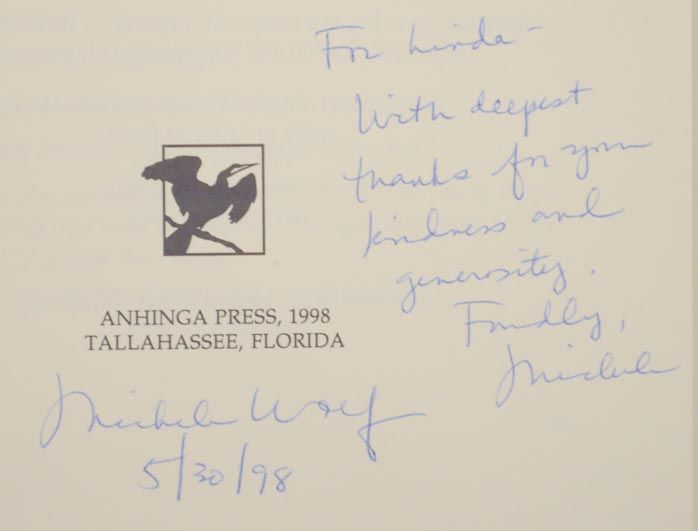 For Linda –
With deepest
thanks for your
kindness and
generosity.
Fondly,
Michele
ANHINGA PRESS, 1998
TALLAHASSEE, FLORIDA
Michele Wolf
5/30/98